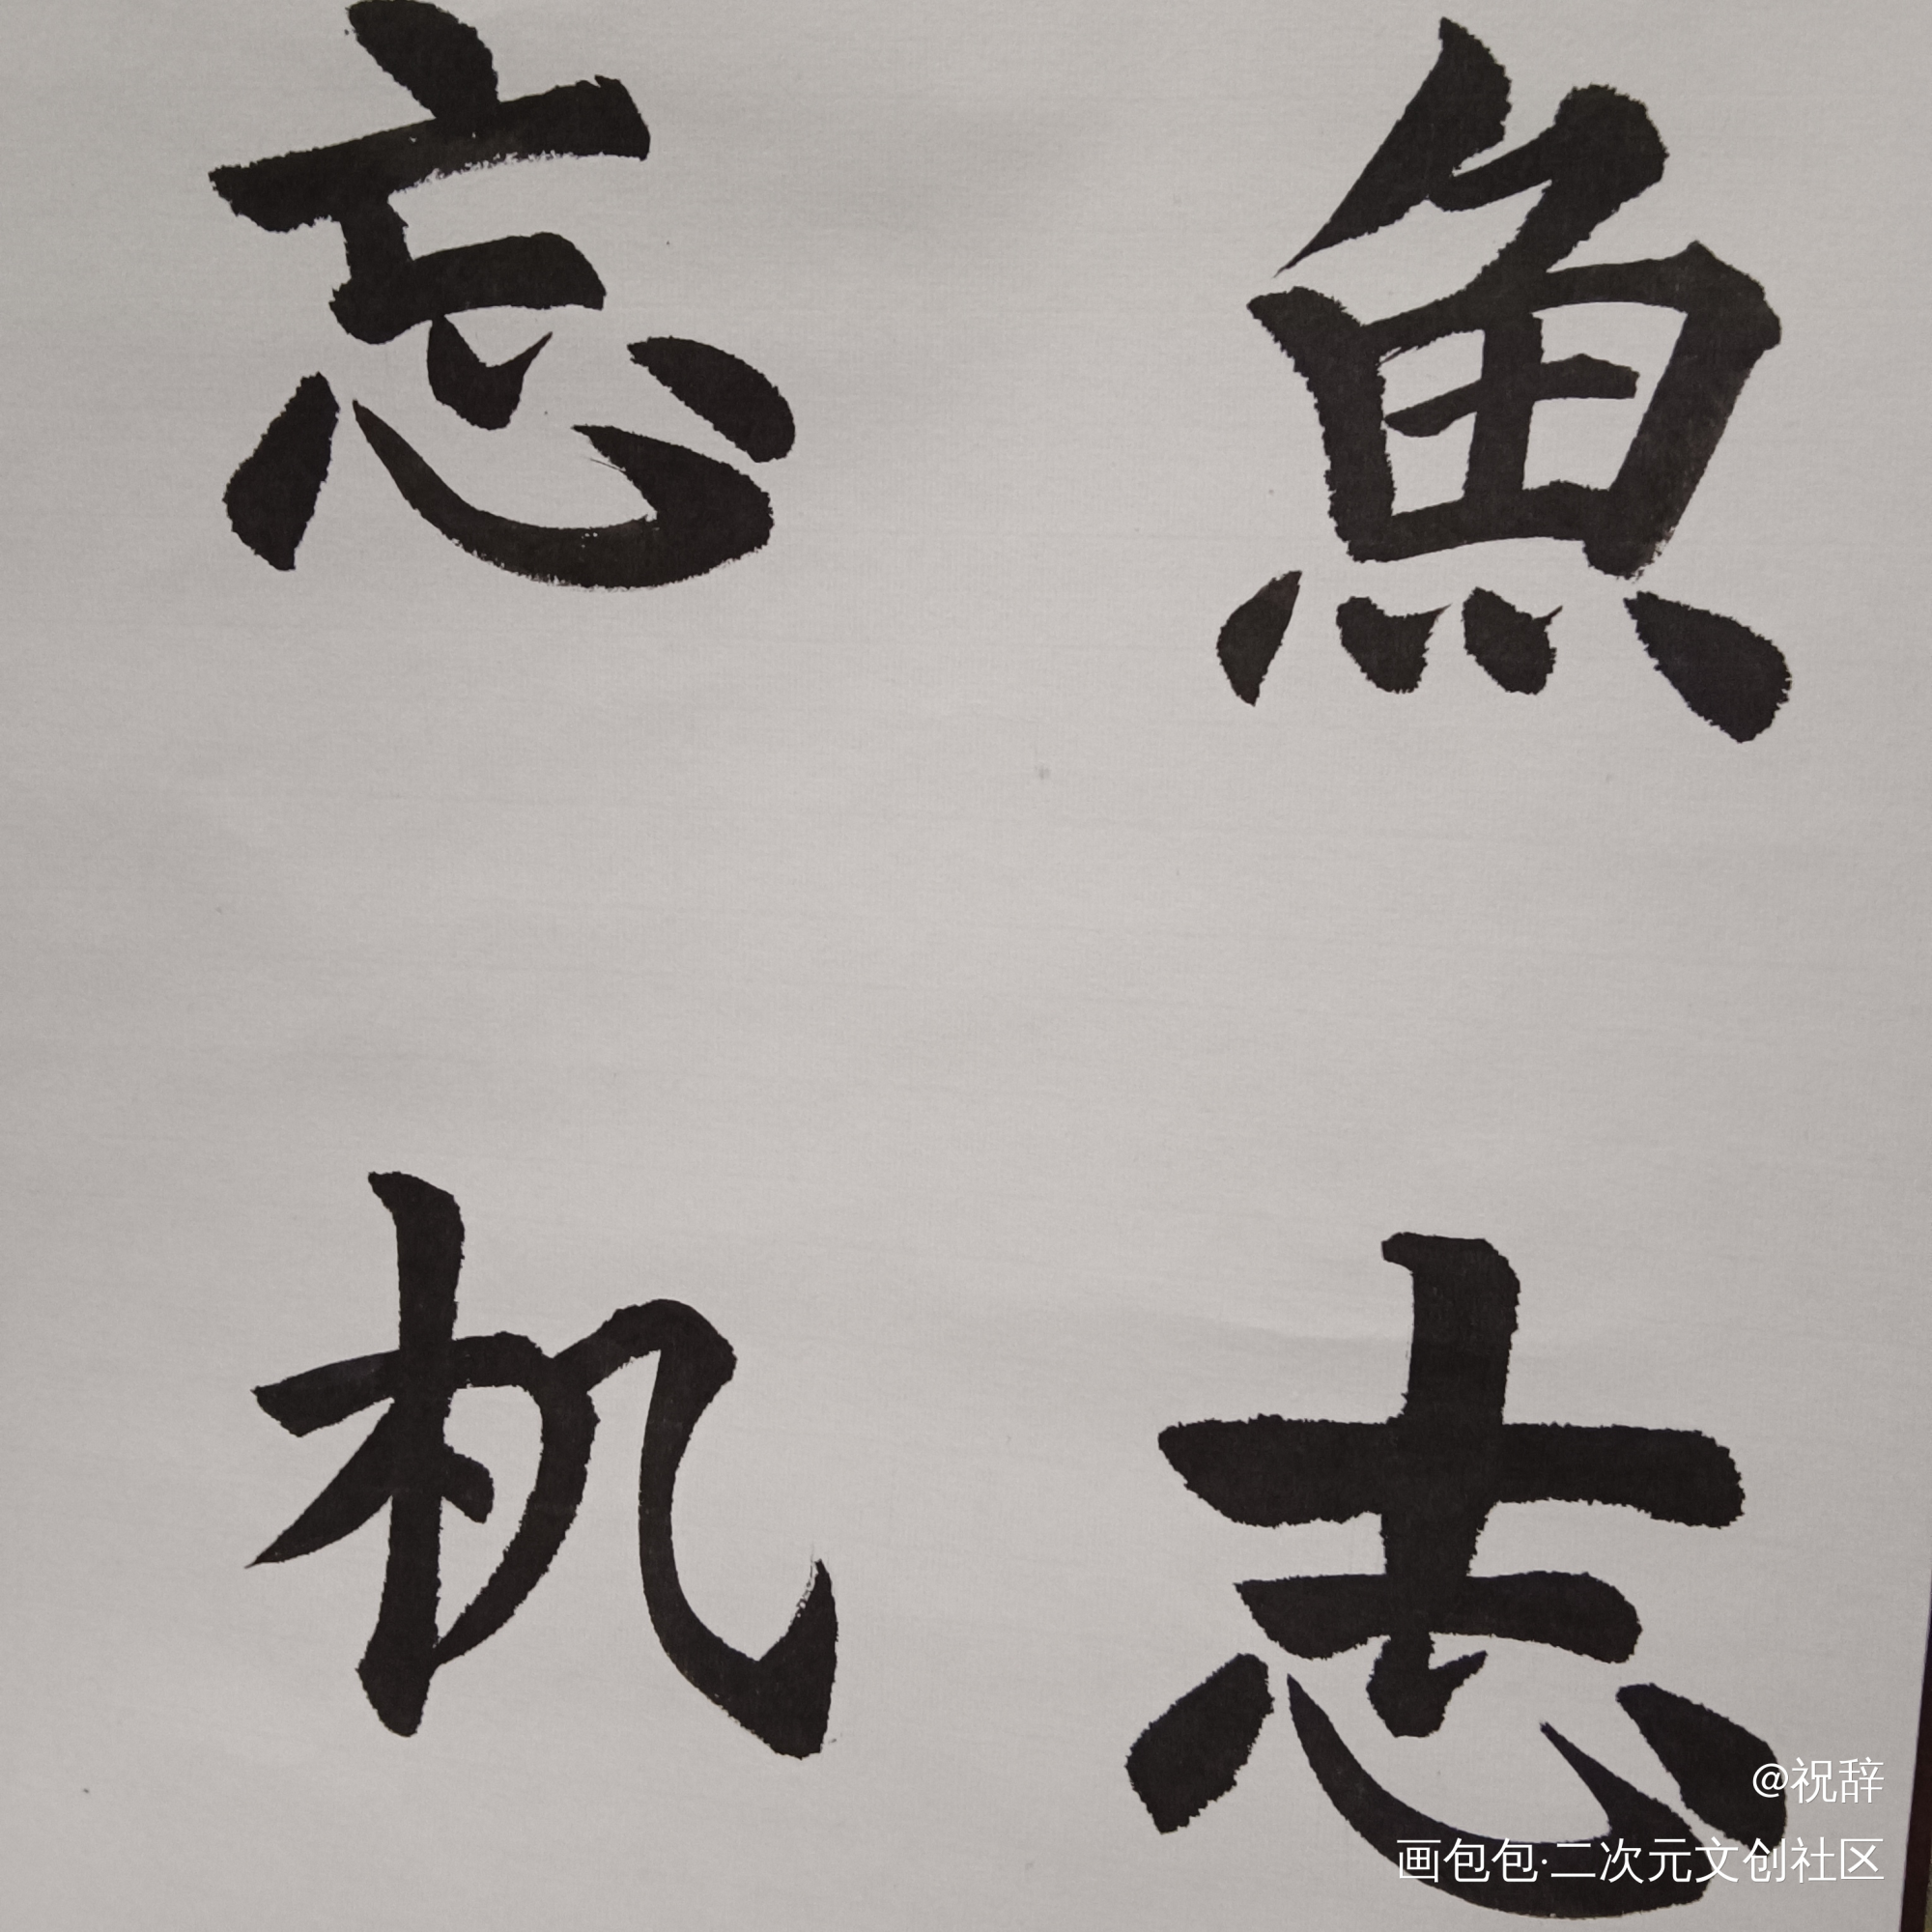 魚志
忘机
@祝辞
画包包·二次元文创社区